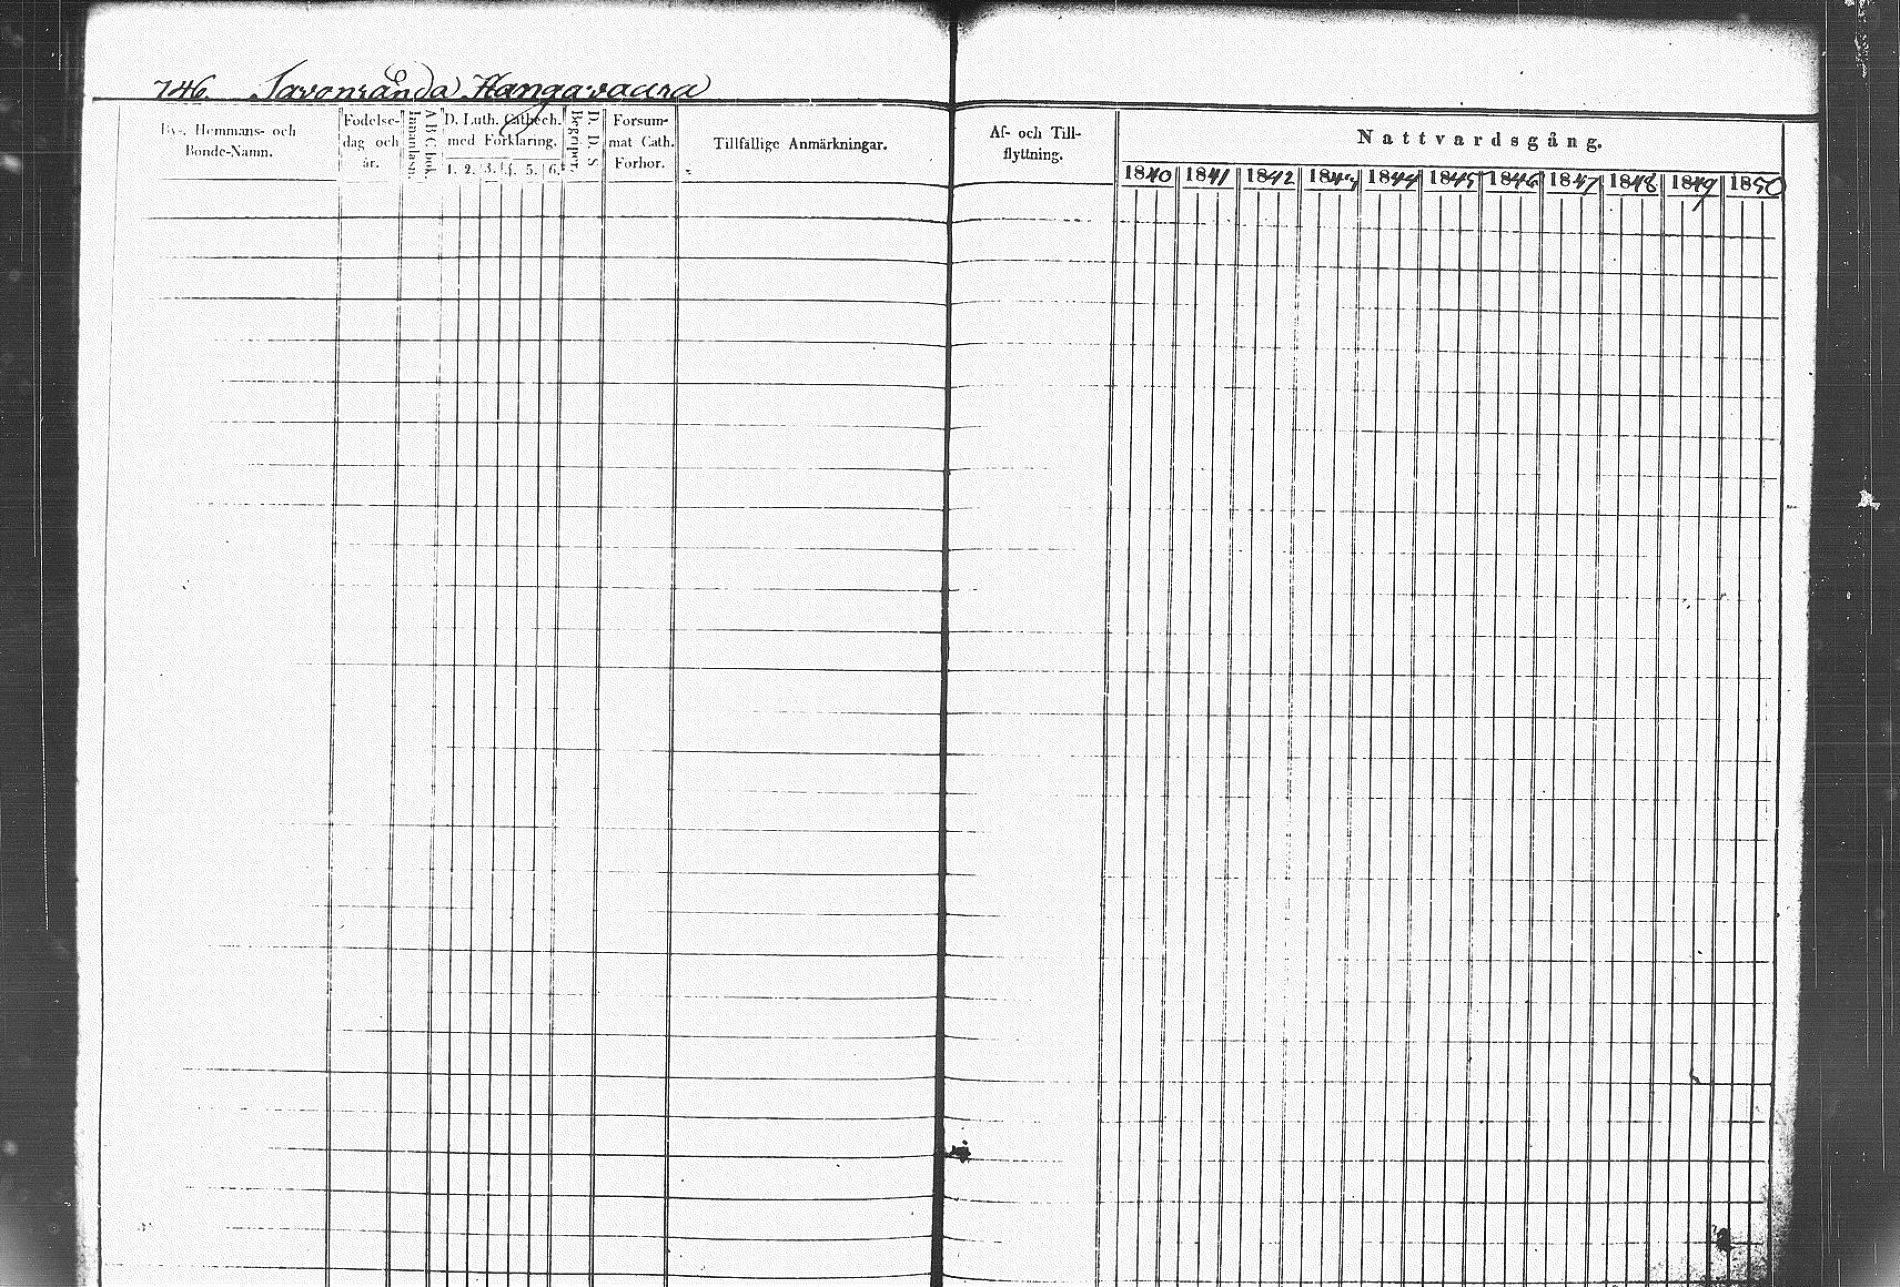 746. Savonranda Hangavaara
By-, Hemmans- och
Bonde-Namn.
Fodelse-
dag och
år.
Innanläsn.
A B C bok.
D. Luth. Cathech.
med Forklaring.
1. 2. 3. 4. 5. 6.
Begriper.
D. D. S
Forsum-
mat Cath.
Forhor.
Tillfallige Anmärkningar.
Af- och Till-
flyttning.
Nattvardsgång.
1840 1841 1842 1843 1844 1845 1846 1847 1848 1849 1850